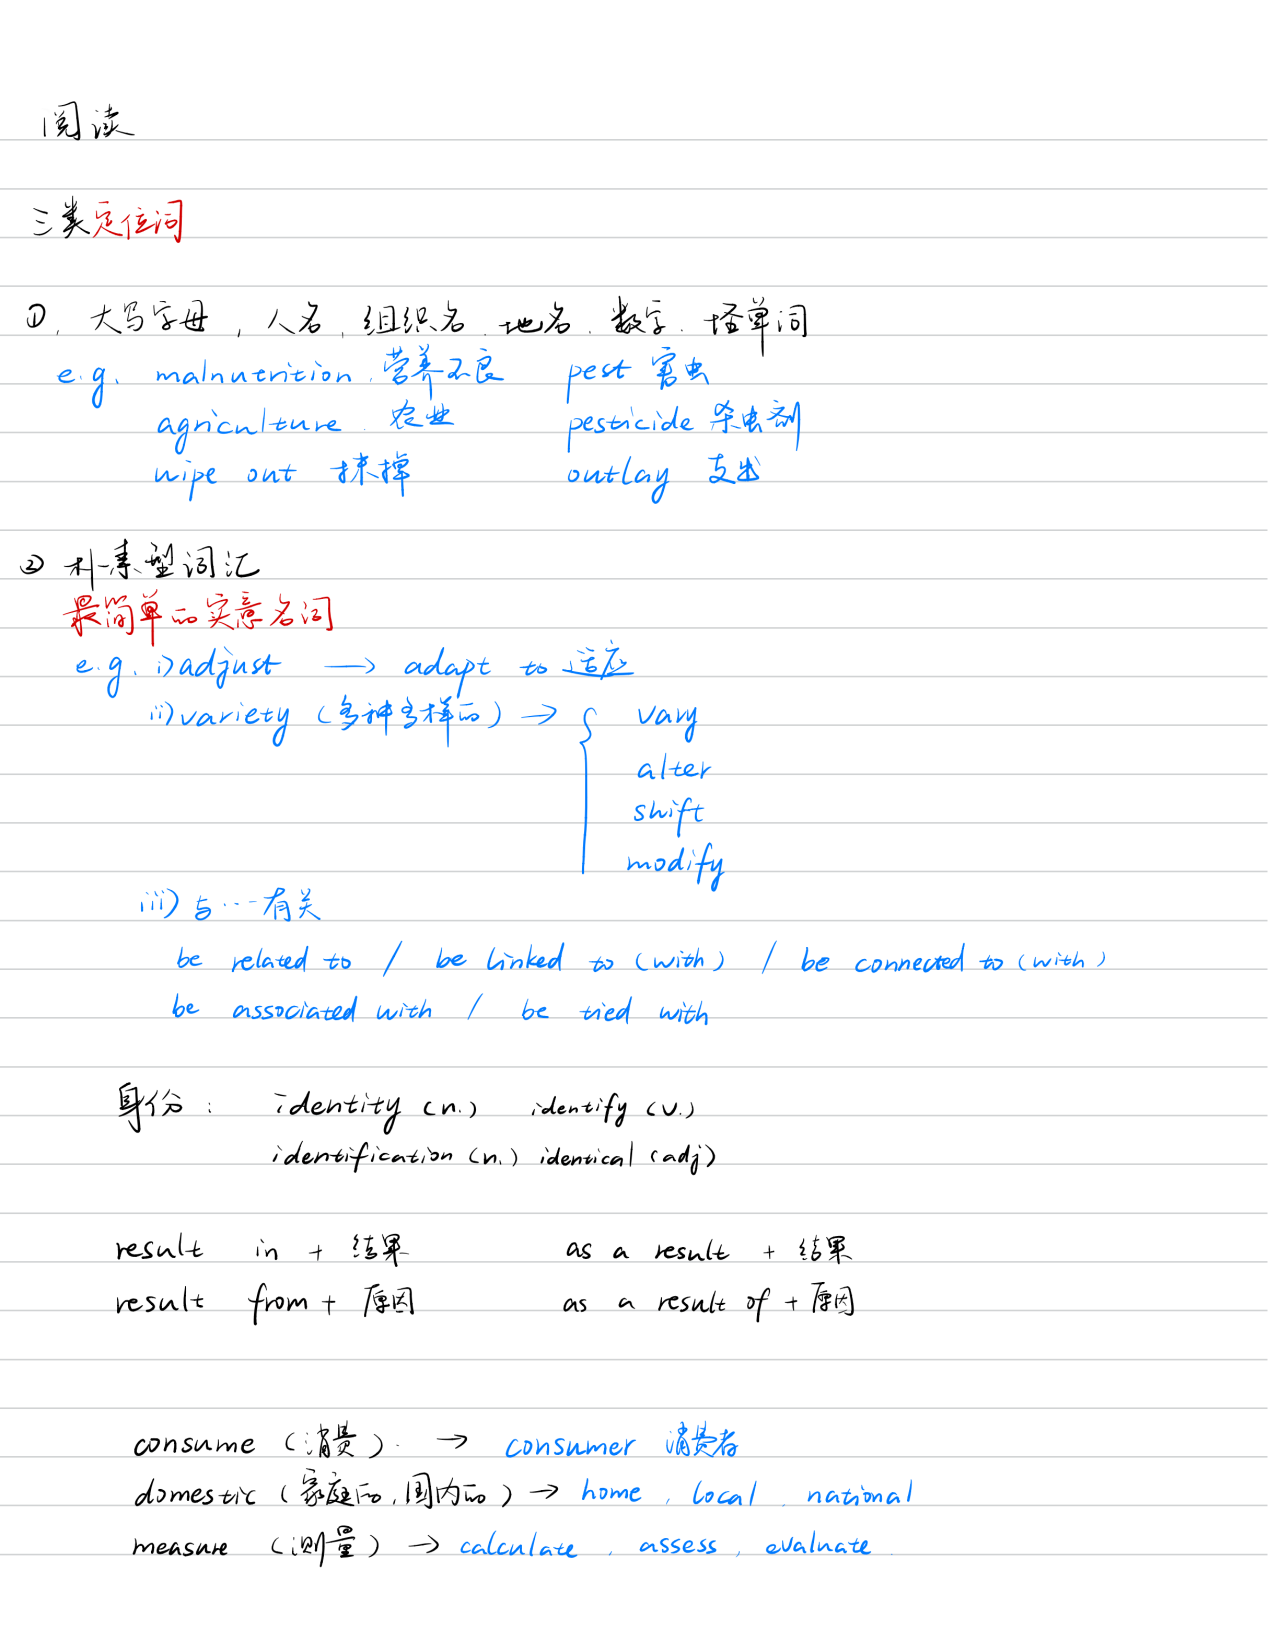 阅读
三类定位词
①. 大写字母, 人名, 组织名. 地名. 数字. 怪单词
e.g. malnutrition. 营养不良 pest 害虫
agriculture. 农业 pesticide 杀虫剂
wipe out 抹掉 outlay 支出
② 朴素型词汇
最简单的实意名词
e.g. i) adjust → adapt to 适应
ii) variety (多种多样的) → { vary
alter
shift
modify
iii) 与…有关
be related to / be linked to (with) / be connected to (with)
be associated with / be tied with
身份: identity (n.) identify (v.)
identification (n.) identical (adj)
result in + 结果 as a result + 结果
result from + 原因 as a result of + 原因
consume (消费). → consumer 消费者
domestic (家庭的, 国内的) → home, local, national
measure (测量) → calculate, assess, evaluate.